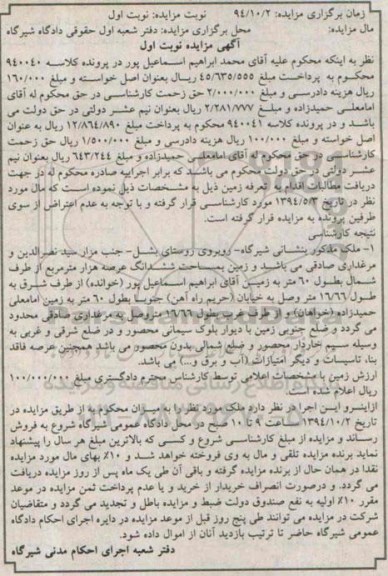 زمان برگزاری مزایده: ۹۴/۱۰/۲ نوبت مزایده: نوبت اول
مال مزایده: محل برگزاری مزایده: دفتر شعبه اول حقوقی دادگاه شیرگاه
آگهی مزایده نوبت اول
نظر به اینکه محکوم علیه آقای محمد ابراهیم اسماعیل پور در پرونده کلاسه ۹۴۰۰۴۰
محکوم به پرداخت مبلغ ۴۵/۶۳۵/۵۵۵ ریال بعنوان اصل خواسته و مبلغ ۱۶۰/۰۰۰
ریال هزینه دادرسی و مبلغ ۲/۰۰۰/۰۰۰ حق زحمت کارشناسی در حق محکوم له آقای
امامعلی حمیدزاده و مبلغ ۲/۲۸۱/۷۷۷ ریال بعنوان نیم عشر دولتی در حق دولت می
باشد و در پرونده کلاسه ۹۴۰۰۴۱ محکوم به پرداخت مبلغ ۱۲/۸۶۴/۸۹۰ ریال به عنوان
اصل خواسته و مبلغ ۱۰۰/۰۰۰ ریال هزینه دادرسی و مبلغ ۱/۵۰۰/۰۰۰ ریال حق زحمت
کارشناسی در حق محکوم له آقای امامعلی حمیدزاده و مبلغ ۶۴۳/۲۴۴ ریال بعنوان نیم
عشر دولتی در حق دولت محکوم می باشد که برابر اجراییه صادره محکوم له در جهت
دریافت مطالبات اقدام به تعرفه زمین ذیل به مشخصات ذیل نموده است که مال مورد
نظر در تاریخ ۱۳۹۴/۵/۳ مورد کارشناسی قرار گرفته و با توجه به عدم اعتراض از سوی
طرفین پرونده به مزایده قرار گرفته است.
نتیجه کارشناسی
۱- ملک مذکور بنشانی شیرگاه- روبروی روستای بشل- جنب مزار سید نصرالدین و
مرغداری صادقی می باشید و زمین بمساحت ششدانگ عرصه هزار مترمربع از طرف
شمال بطول ۶۰ متر به زمین آقای ابراهیم اسماعیل پور (خوانده) از طرف شرق به
طول ۱۶/۶۶ متر وصل به خیابان (حریم راه آهن) جنوبا بطول ۶۰ متر به زمین امامعلی
حمیدزاده (خواهان) و از طرف غرب بطول ۱۶/۶۶ متر وصل به مرغداری صادقی محدود
می گردد و ضلع جنوبی زمین با دیوار بلوک سیمانی محصور و در ضلع شرقی و غربی به
وسیله سیم خاردار محصور و ضلع شمالی بدون محصور می باشد همچنین عرصه فاقد
بنا، تاسیسات و دیگر امتیازات (آب و برق و...) می باشد.
ارزش زمین با مشخصات اعلامی توسط کارشناس محترم دادگستری مبلغ ۱۰۰/۰۰۰/۰۰۰
ریال اعلام شده است.
ازاینرو این اجرا در نظر دارد ملک مورد نظر را به میزان محکوم به از طریق مزایده در
تاریخ ۱۳۹۴/۱۰/۲ ساعت ۹ تا ۱۰ صبح در محل دادگاه عمومی شیرگاه شروع به فروش
رساند و مزایده از مبلغ کارشناسی شروع و کسی که بالاترین مبلغ هر سال را پیشنهاد
نماید برنده مزایده تلقی و مال به وی فروخته خواهد شد و ۱۰٪ بهای مال مورد مزایده
نقدا در همان حال از برنده مزایده گرفته و باقی آن طی یک ماه پس از روز مزایده دریافت
می گردد. و درصورت انصراف خریدار از خرید و یا عدم پرداخت ثمن مزایده در موعد
مقرر ۱۰٪ اولیه به نفع صندوق دولت ضبط و مزایده باطل و تجدید می گردد و متقاضیان
شرکت در مزایده می توانند طی پنج روز قبل از موعد مزایده در دایره اجرای احکام دادگاه
عمومی شیرگاه حاضر تا ترتیب بازدید آنان از اموال داده شود.
دفتر شعبه اجرای احکام مدنی شیرگاه